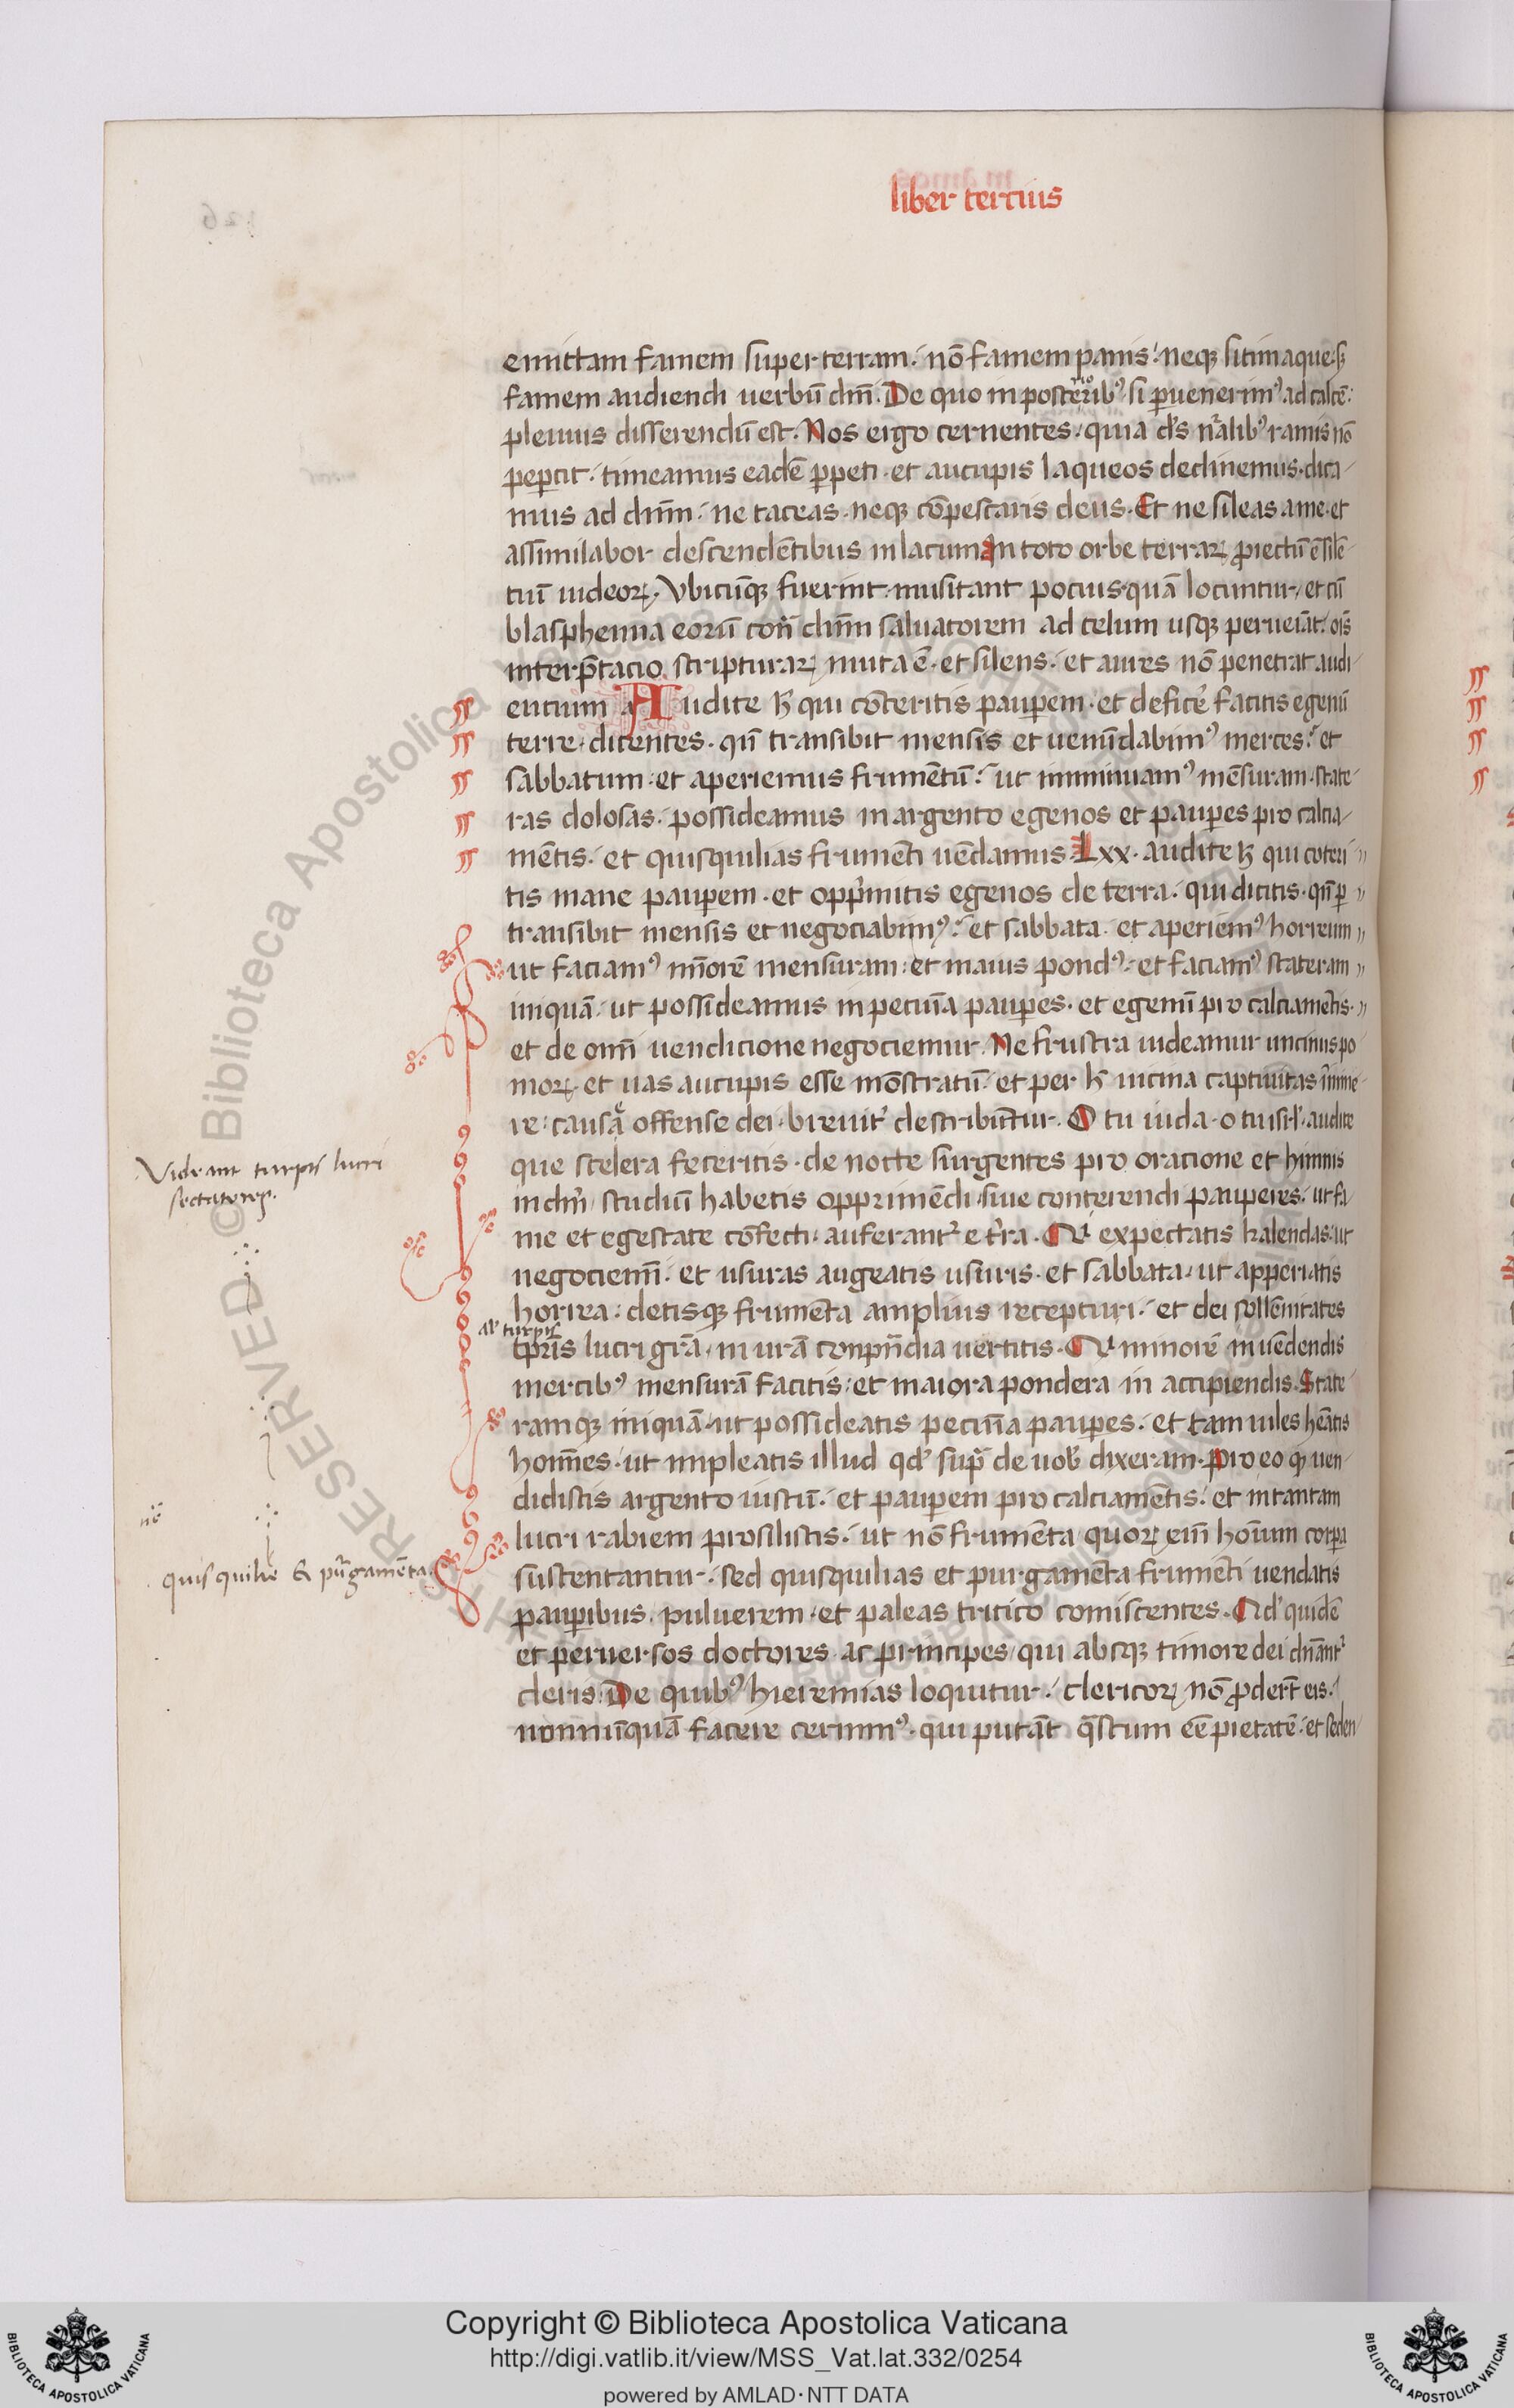 liber tertius
emittam famem super terram. nō famem panis. neqꝫ sitim aque. sꝫ
famem audiendi uerbū dm̄. De quo in posterioribꝰ si ꝑuenerimꝰ ad calcē.
plenius disserendū est. Nos ergo cernentes. quia ds̄ nr̄alibꝰ ramis nō
peꝑcit. timeamus eadē ꝑpeti. et aucupis laqueos declinemus. dica
mus ad dn̄m. ne taceas. neqꝫ cōpescaris deus. Et ne sileas a me. et
assimilabor descendētibus in lacum. In toto orbe terraꝝ ꝓiectū ē silē
tiū iudeoꝝ. Vbicūqꝫ fuerint. musitant pocius quā locuntur, et cū
blasphemia eorū con̄ dn̄m saluatorem ad celum usqꝫ perueiāt. ois̄
interp̄tacio scripturaꝝ muta ē. et silens. et aures nō penetrat audi
entium Audite h̄ qui cōteritis pauꝑem. et deficē facitis egenū
terre. dicentes. qn̄ transibit mensis et uenūdabimꝰ merces. et
sabbatum. et aperiemus frumētū. ut imminuamꝰ mēsuram. state
ras dolosas. possideamus in argento egenos et pauꝑes pro calcia
mētis. et quisquilias frumēti uēdamus. Lxx. audite h̄ qui coteri
tis mane pauꝑem. et opp̄mitis egenos de terra. qui dicitis. qn̄ ꝑ
transibit mensis et negociabimꝰ. et sabbata. et aperiemꝰ horreum
ut faciamꝰ mn̄orē mensuram. et maius pondꝰ. et faciamꝰ stateram
iniquā. ut possideamus in pecun̄a pauꝑes. et egenū pro calciamētis.
et de omī uendicione negociemur. Ne frustra uideamur uncinus po
moꝝ. et uas aucupis esse mōstratū. et per h̄ uicina captiuitas īmine
re. causā offense dei. breuit̄ describūtur. O tu iuda. o tu isrl̄. audite
que scelera feceritis. de nocte surgentes pro oracione et himnis
in dm̄. studiū habetis opprimēdi. siue conterendi pauperes. ut fa
me et egestate cōfecti. auferant̄ e t̄ra. Et expectatis kalendas. ut
negociem̄. et usuras augeatis usuris. et sabbata. ut apperiatis
horrea. detisqꝫ frumēta amplius recepturi. et dei sollēnitates
al' turpis
tp̄ris lucri gr̄a. in ur̄a conpn̄dia uertitis. Et minorē in uēdendis
mercibꝰ mensurā facitis. et maiora pondera in accipiendis. State
ramqꝫ iniquā. ut possideatis pecun̄a pauꝑes. et tam uiles hēatis
homīes. ut impleatis illud qd̄ supͣ de uob̄ dixeram. Pro eo qꝫ uen
didistis argento iustū. et pauꝑem pro calciamētis. et in tantam
lucri rabiem prosilistis. ut nō frumēta quoꝝ eim̄ hoīum corpa
sustentantur. sed quisquilias et purgamēta frumēti uendatis
pauꝑibus. puluerem. et paleas tritico comiscentes. Ad quidē
et peruersos doctores. ac principes, qui absqꝫ timore dei dn̄ant̄
cleris. De quibꝰ hieremias loquitur. clericoꝝ nō ꝓder̄t eis.
nonnūquā facere cernimꝰ. qui putāt q̄stum eē pietatē. et seden
Videant turpis lucri
sectatores.
quisquilie & purgamēta
Copyright © Biblioteca Apostolica Vaticana
http://digi.vatlib.it/view/MSS_Vat.lat.332/0254
powered by AMLAD·NTT DATA
BIBLIOTECA APOSTOLICA VATICANA
BIBLIOTECA APOSTOLICA VATICANA